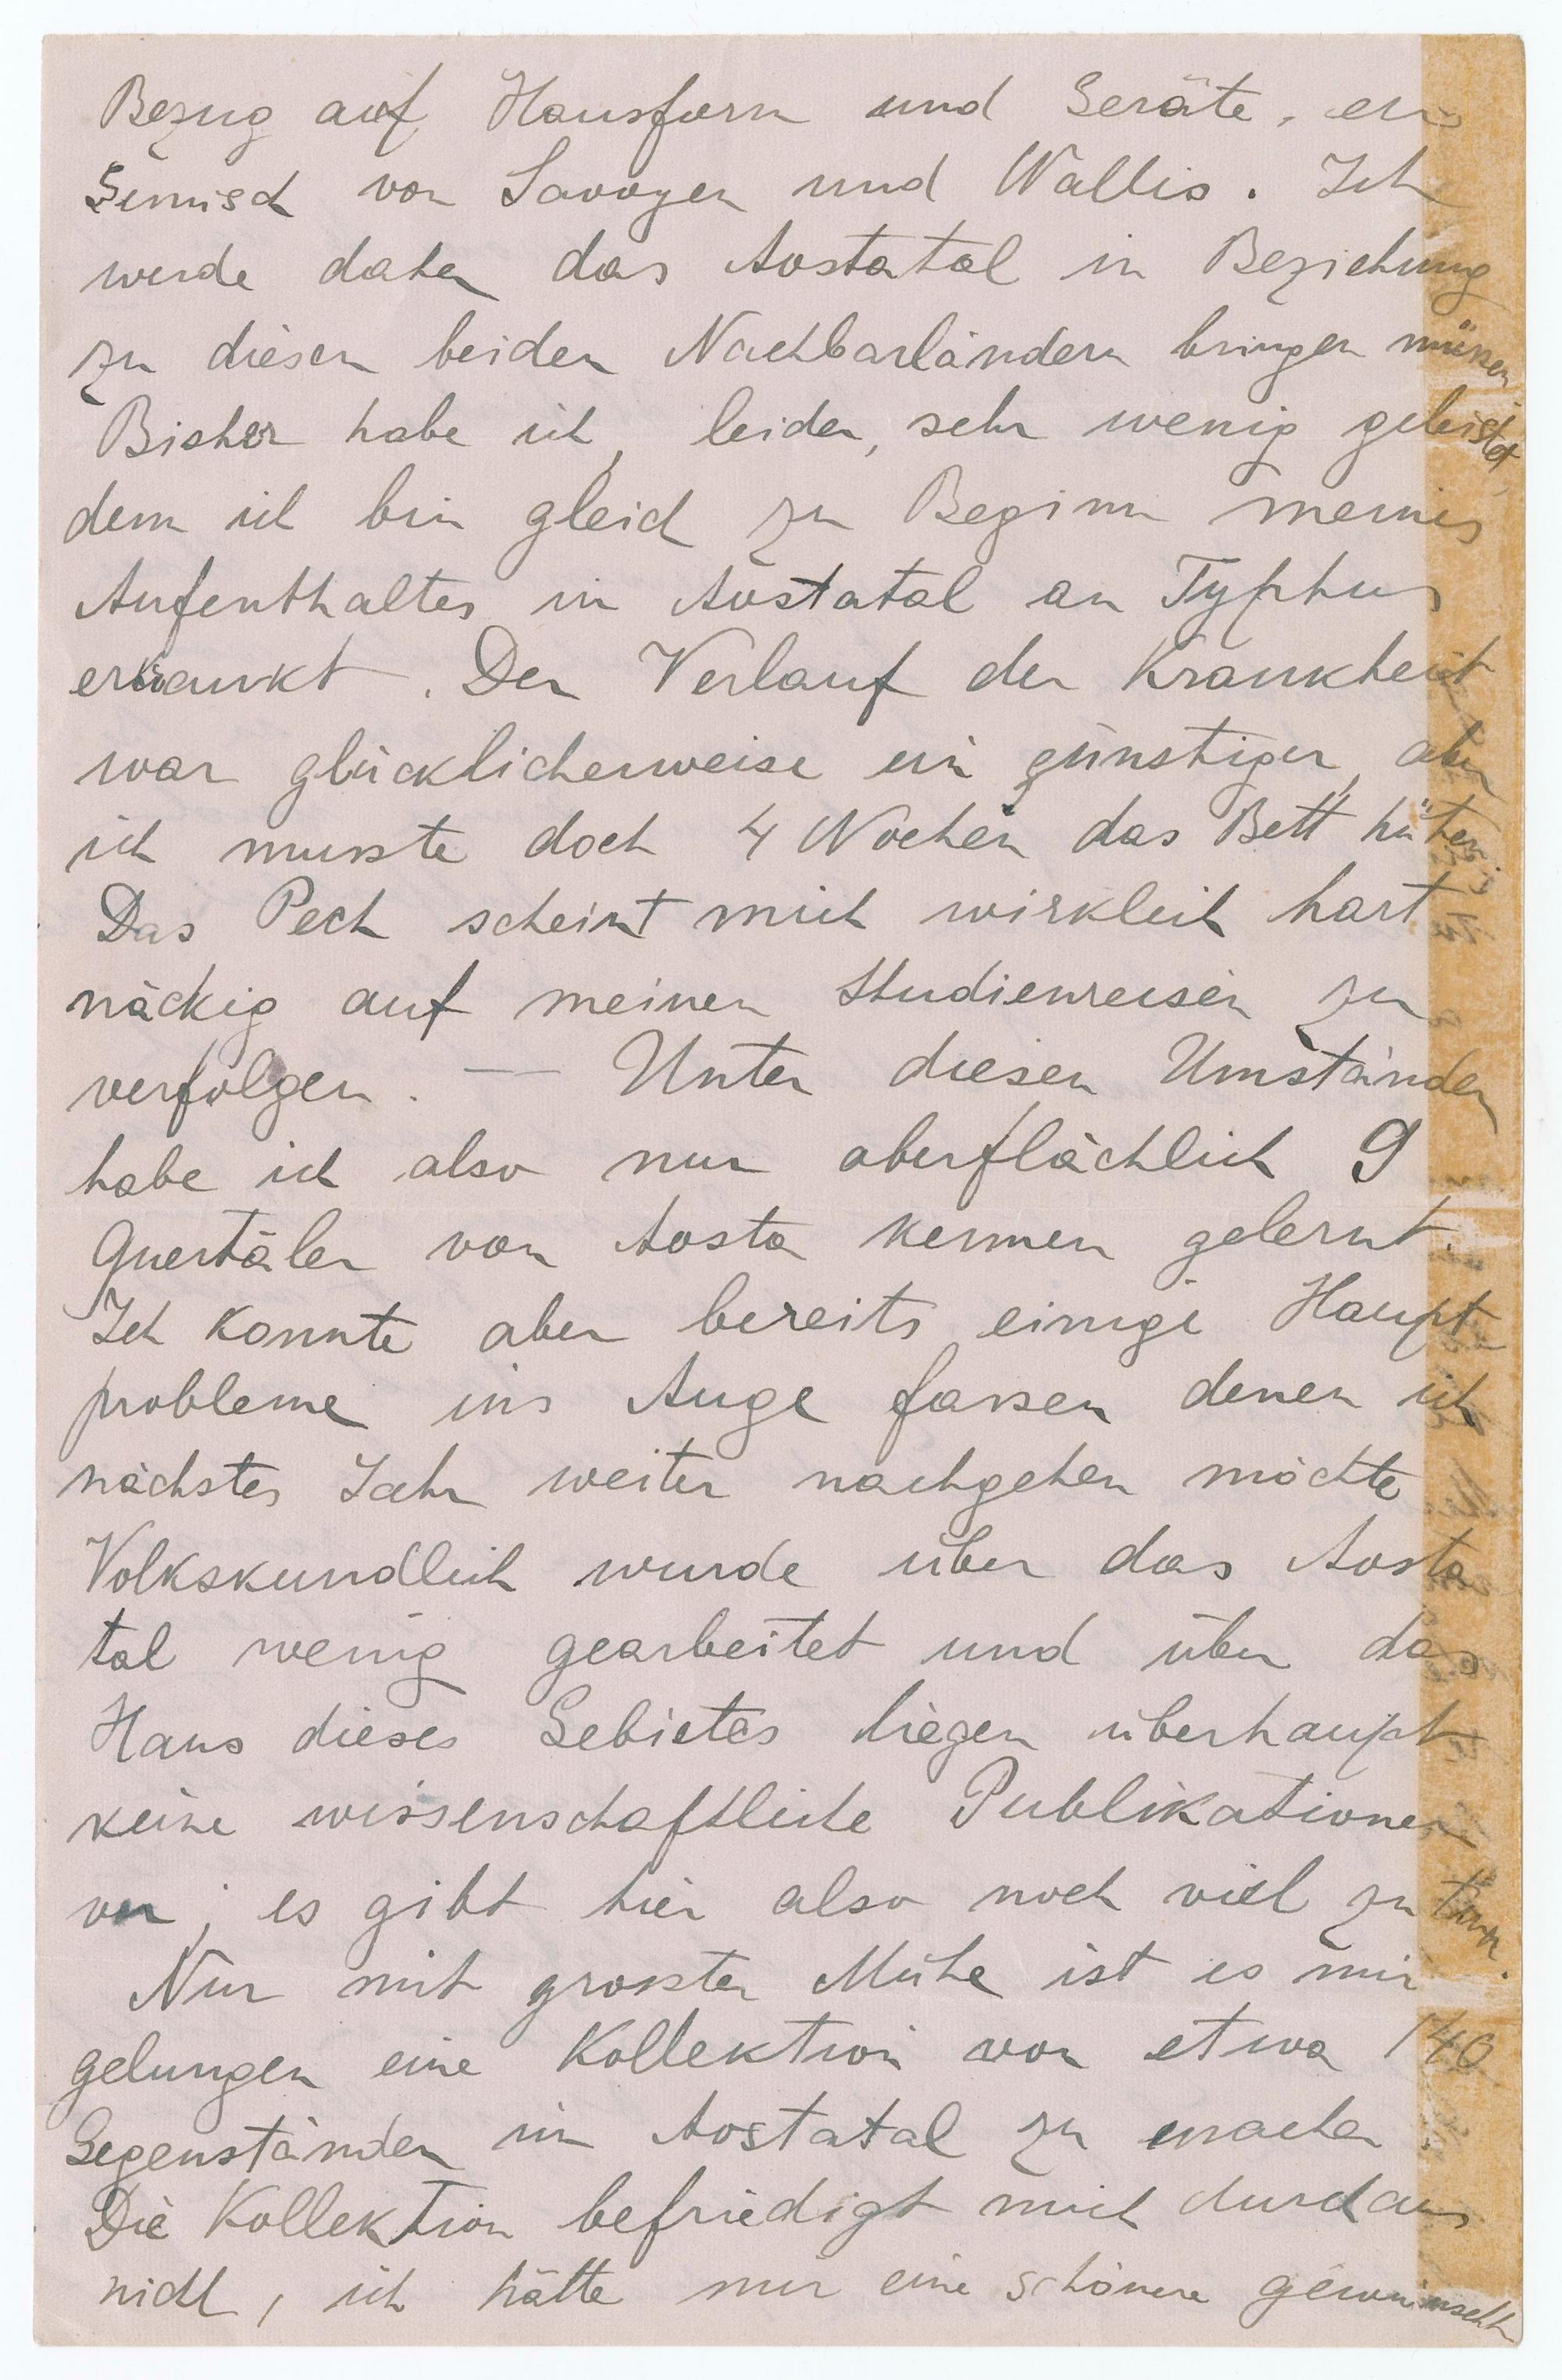 Bezug auf Hausform und Geräte, ein
Gemisch von Savoyen und Wallis. Ich
werde daher das Aostatal in Beziehung
zu diesen beiden Nachbarländern bringen müssen
Bisher habe ich, leider, sehr wenig geleistet,
denn ich bin gleich zu Beginn meines
Aufenthaltes in Aostatal an Typhus
erkrankt. Der Verlauf der Krankheit
war glücklicherweise ein günstiger, aber
ich musste doch 4 Wochen das Bett hüten.
Das Pech scheint mich wirklich hart
näckig auf meinen Studienreisen zu
verfolgen. — Unter diesen Umständen
habe ich also nur oberflächlich 9
Quertäler von Aosta kennen gelernt.
Ich konnte aber bereits einige Haupt
probleme ins Auge fassen denen ich
nächstes Jahr weiter nachgehen möchte
Volkskundlich wurde über das Aosta
tal wenig gearbeitet und über das
Haus dieses Gebietes liegen überhaupt
keine wissenschaftliche Publikationen
vor; es gibt hier also noch viel zu tun.
Nur mit grosster Mühe ist es mir
gelungen eine Kollektion von etwa 140
Gegenständen im Aostatal zu machen
Die Kollektion befriedigt mich durchaus
nicht, ich hätte mir eine schönere gewünscht